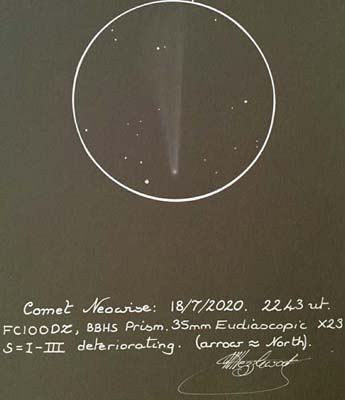 Comet Neowise: 18/7/2020. 2243 ut.
FC100DZ, BBHS Prism. 35mm Eudiascopic X23
S=I-III deteriorating. (arrow ≈ North).